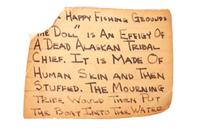 Happy Fishing Grounds
The Doll" is An Effigy Of
A Dead Alaskan Tribal
Chief. It is Made Of
Human Skin and Then
Stuffed. The Mourning
Tribe Would Then Put
The Boat Into The Water